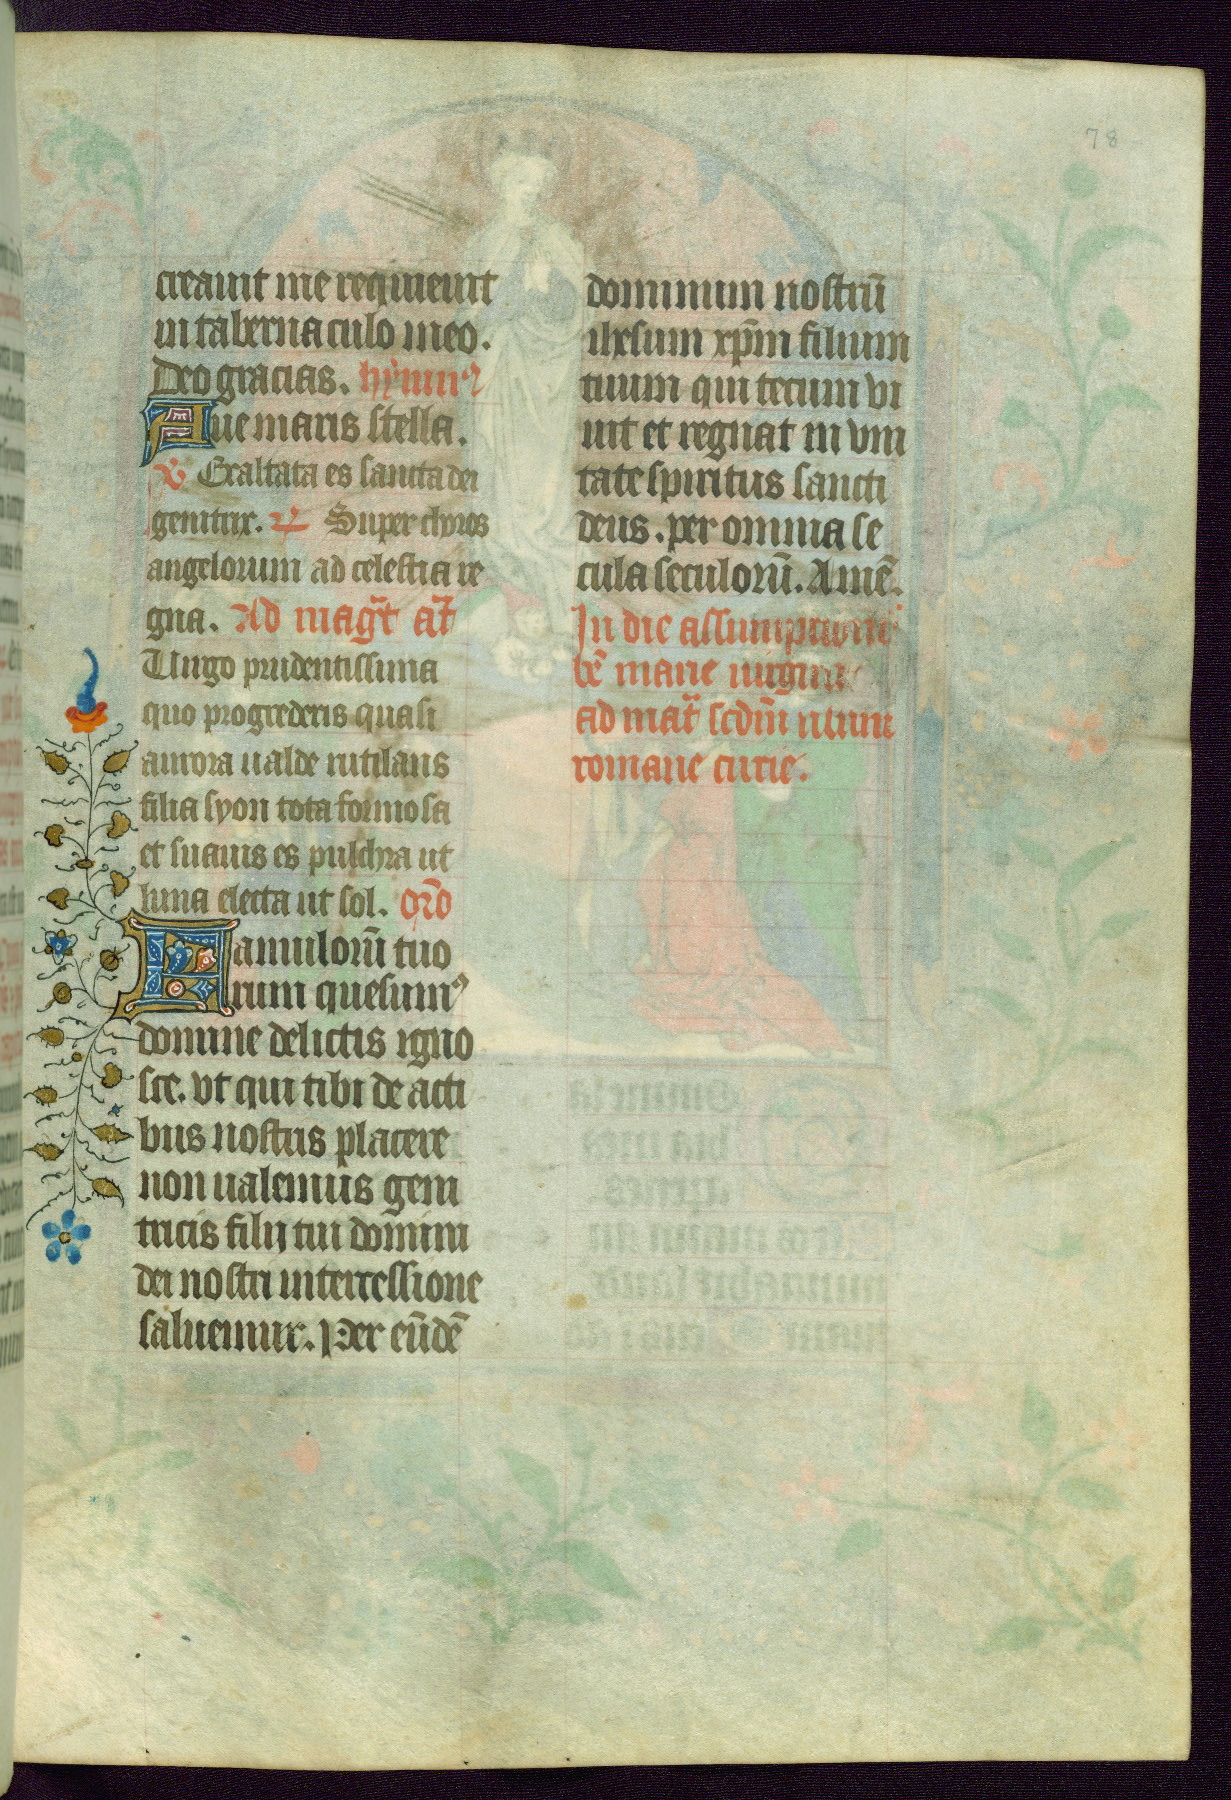 78
creauit me requieuit
in tabernaculo meo.
Deo gracias. hȳmnꝰ
Aue maris stella.
℣ Exaltata es sancta dei
genitrix. ℟ Super choros
angelorum ad celestia re
gna. Ad mag̅t an̅t
Uirgo prudentissima
quo progrederis quasi
aurora ualde rutilans
filia syon tota formosa
et suauis es pulchra ut
luna electa ut sol. oro̅
Famuloru̅ tuo
rum quesumꝰ
domine delictis igno
sce. vt qui tibi de acti
bus nostris placere
non ualemus geni
tricis filij tui domini
dei nostri intercessione
saluemur. Per eu̅de̅
dominum nostru̅
ihesum xp̅m filium
tuum qui tecum vi
uit et regnat in vni
tate spiritus sancti
deus. per omnia se
cula seculoru̅. Ame̅.
In die assumptionis
be̅ marie uirginis
ad mat̅ scdm̅ usum
romane curie.